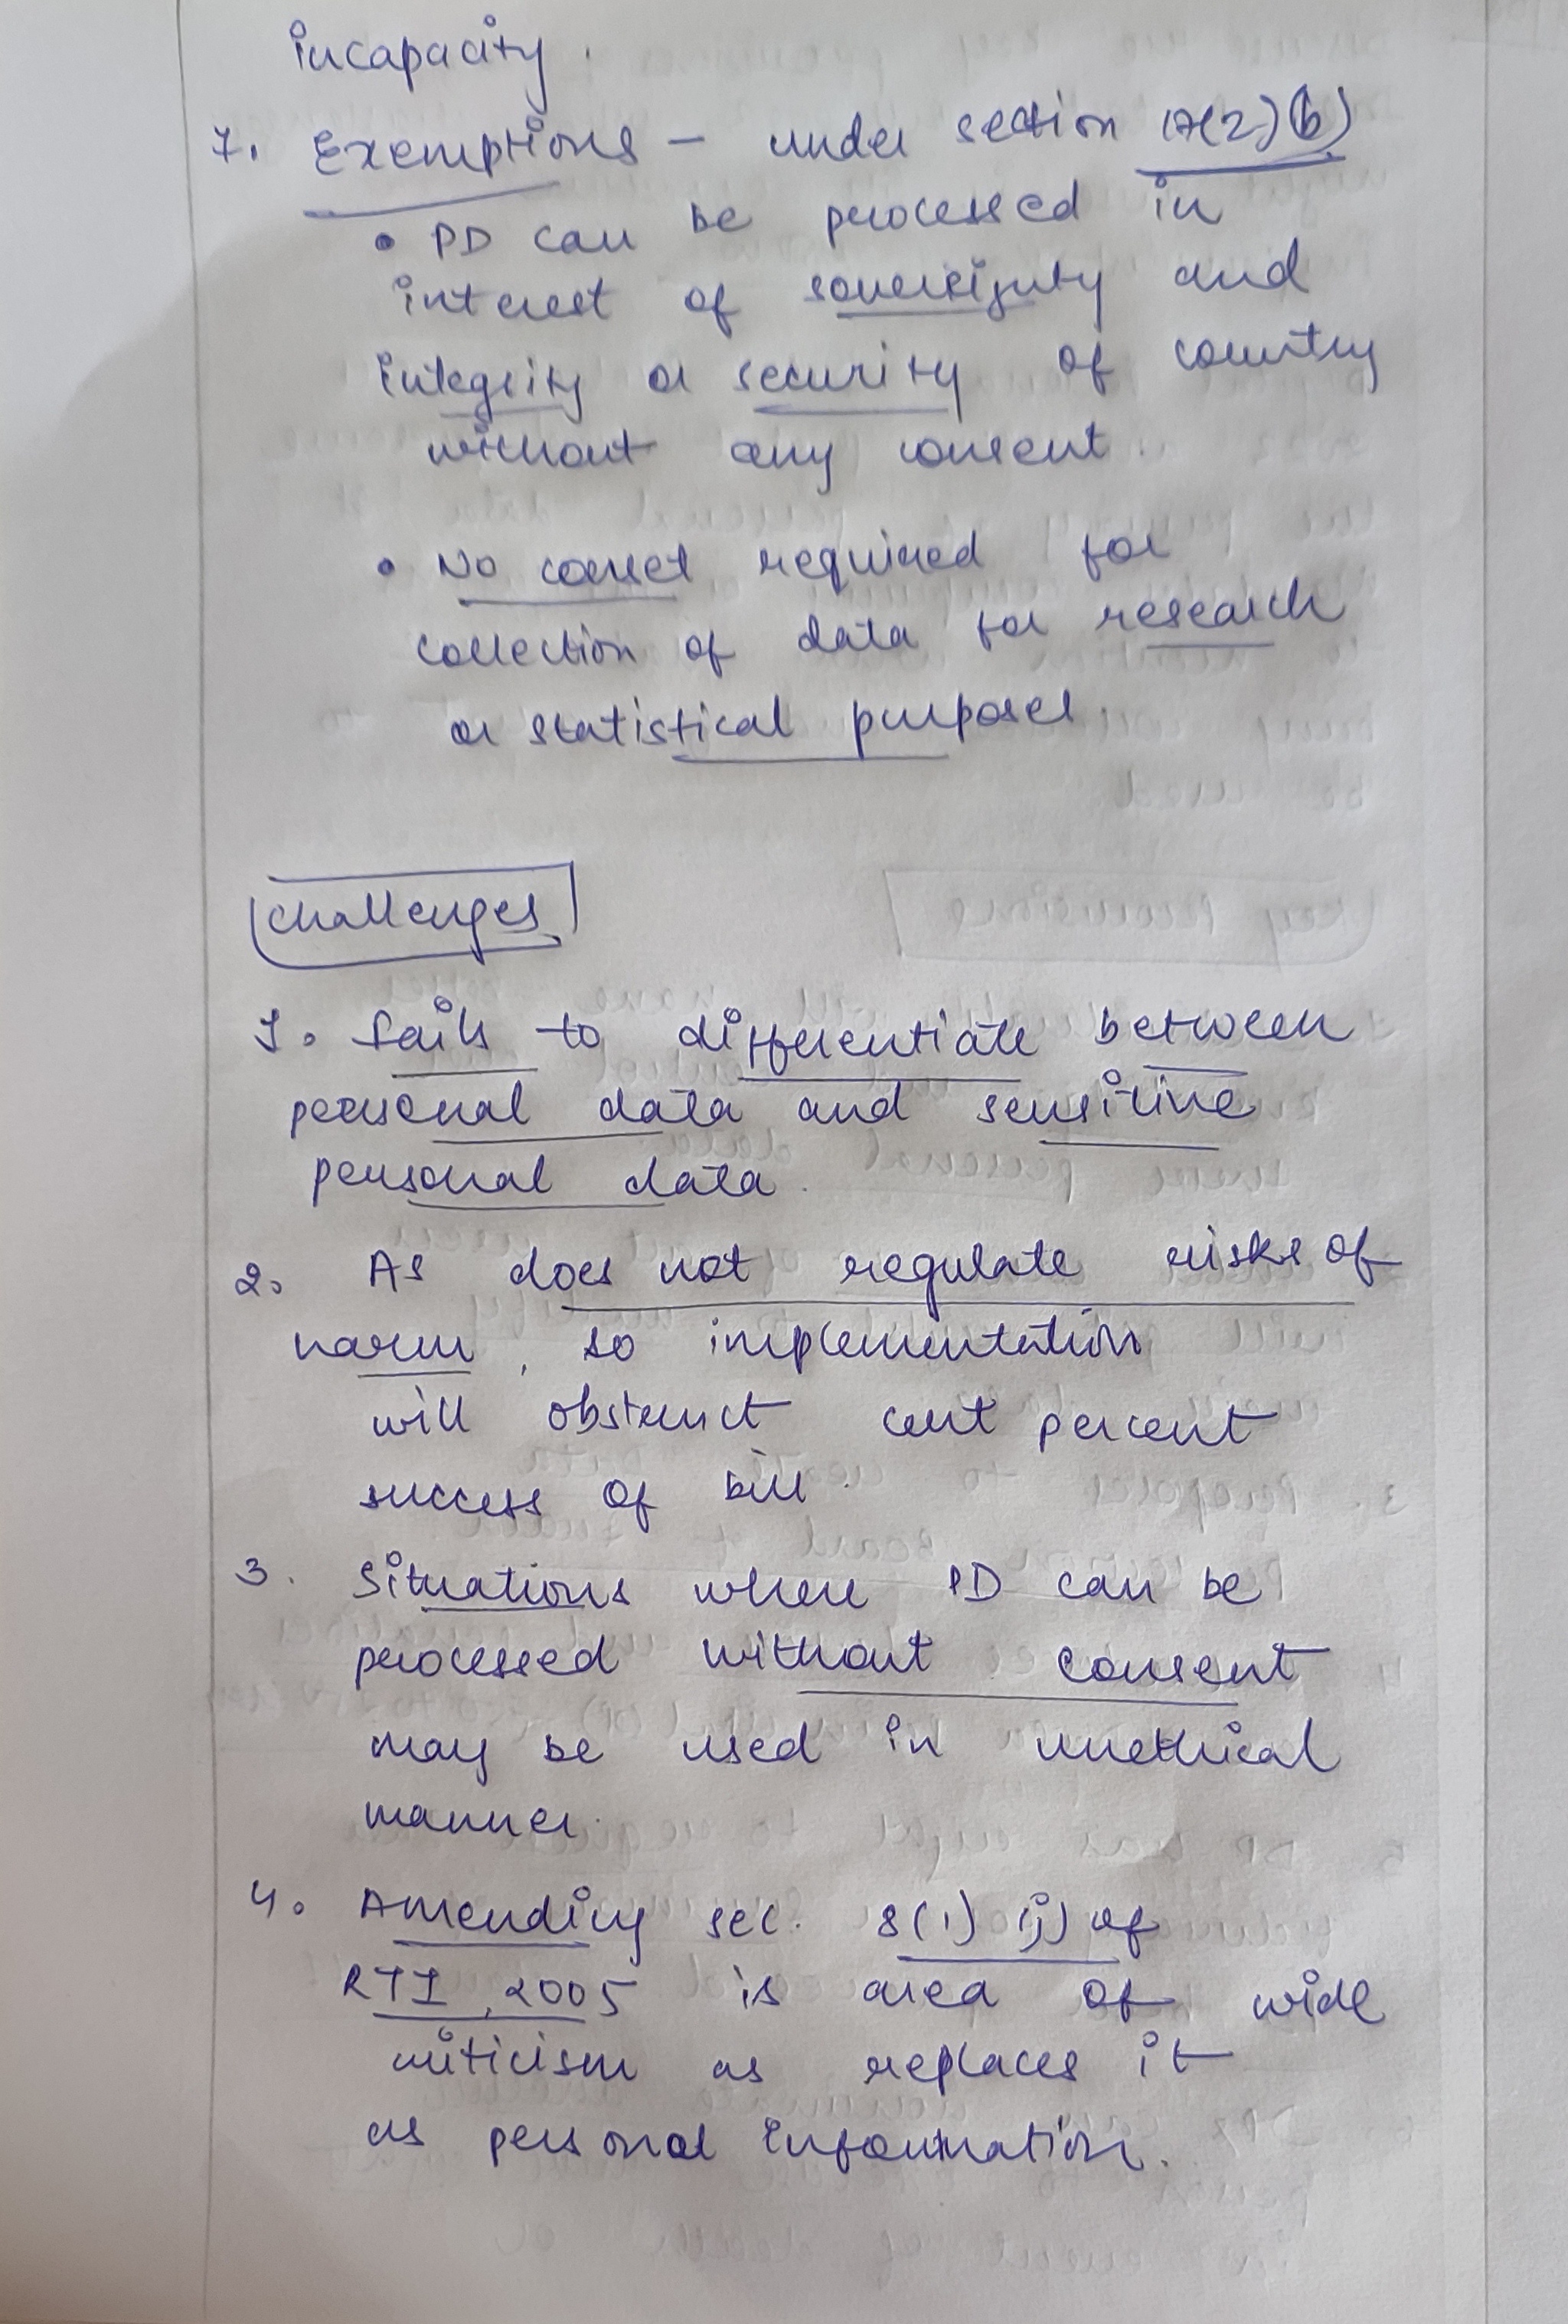 incapacity.
7. Exemptions - under section 17(2)(b)
• PD can be processed in
interest of sovereignty and
integrity or security of country
without any consent.
• No conset required for
collection of data for research
or statistical purposes.
Challenges
1. Fails to differentiate between
personal data and sensitive
personal data.
2. As does not regulate risks of
harm, so implementation
will obstruct cent percent
success of bill.
3. Situations where PD can be
processed without consent
may be used in unethical
manner.
4. Amending sec. 8(1)(j) of
RTI, 2005 is area of wide
criticism as replaces it
as personal information.